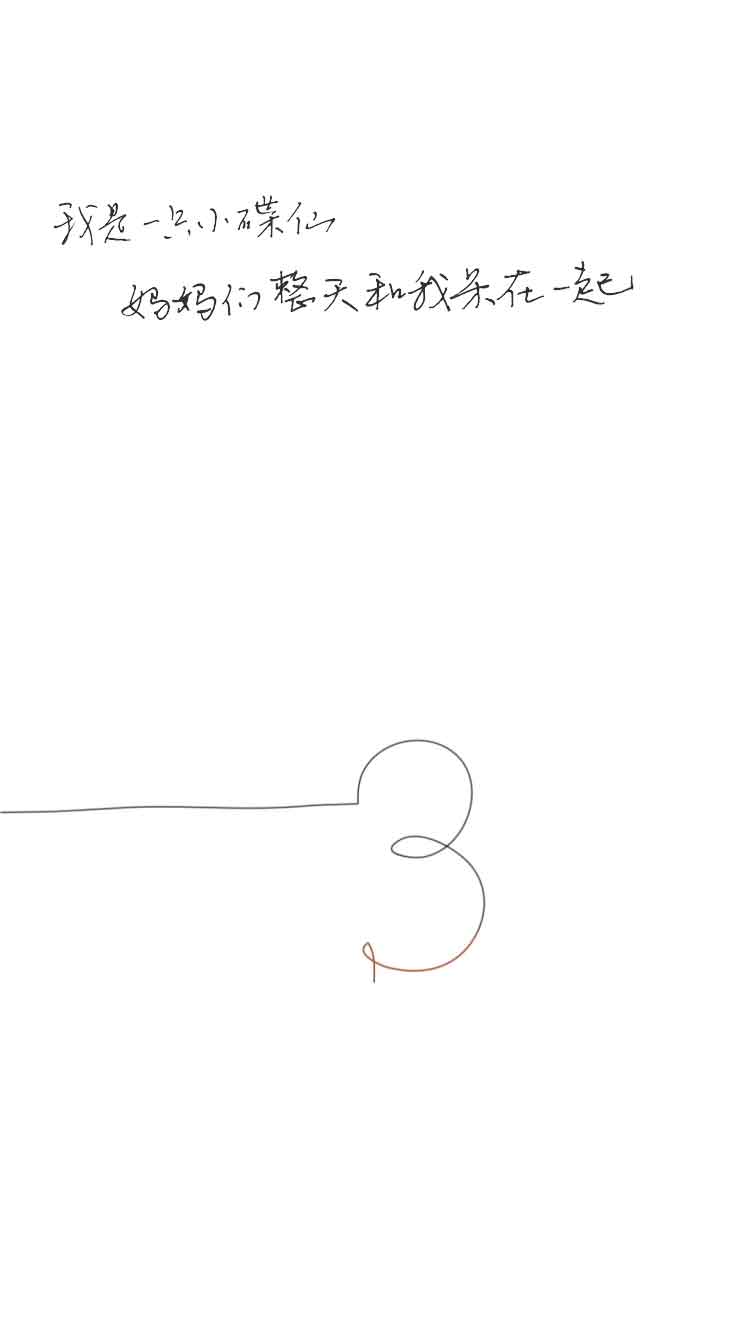 我是一只小碟仙
妈妈们整天和我呆在一起
3